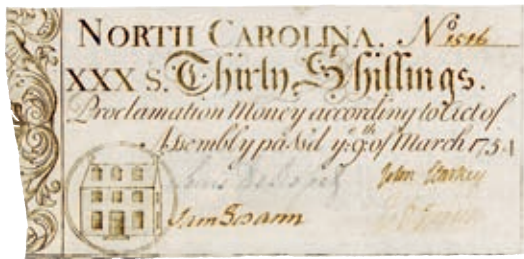 NORTH CAROLINA. No 1516
XXX S. Thirty Shillings.
Proclamation Money according to Act of
Assembly passd ye. 9th of March 1754
John Starkey
Sam Swann